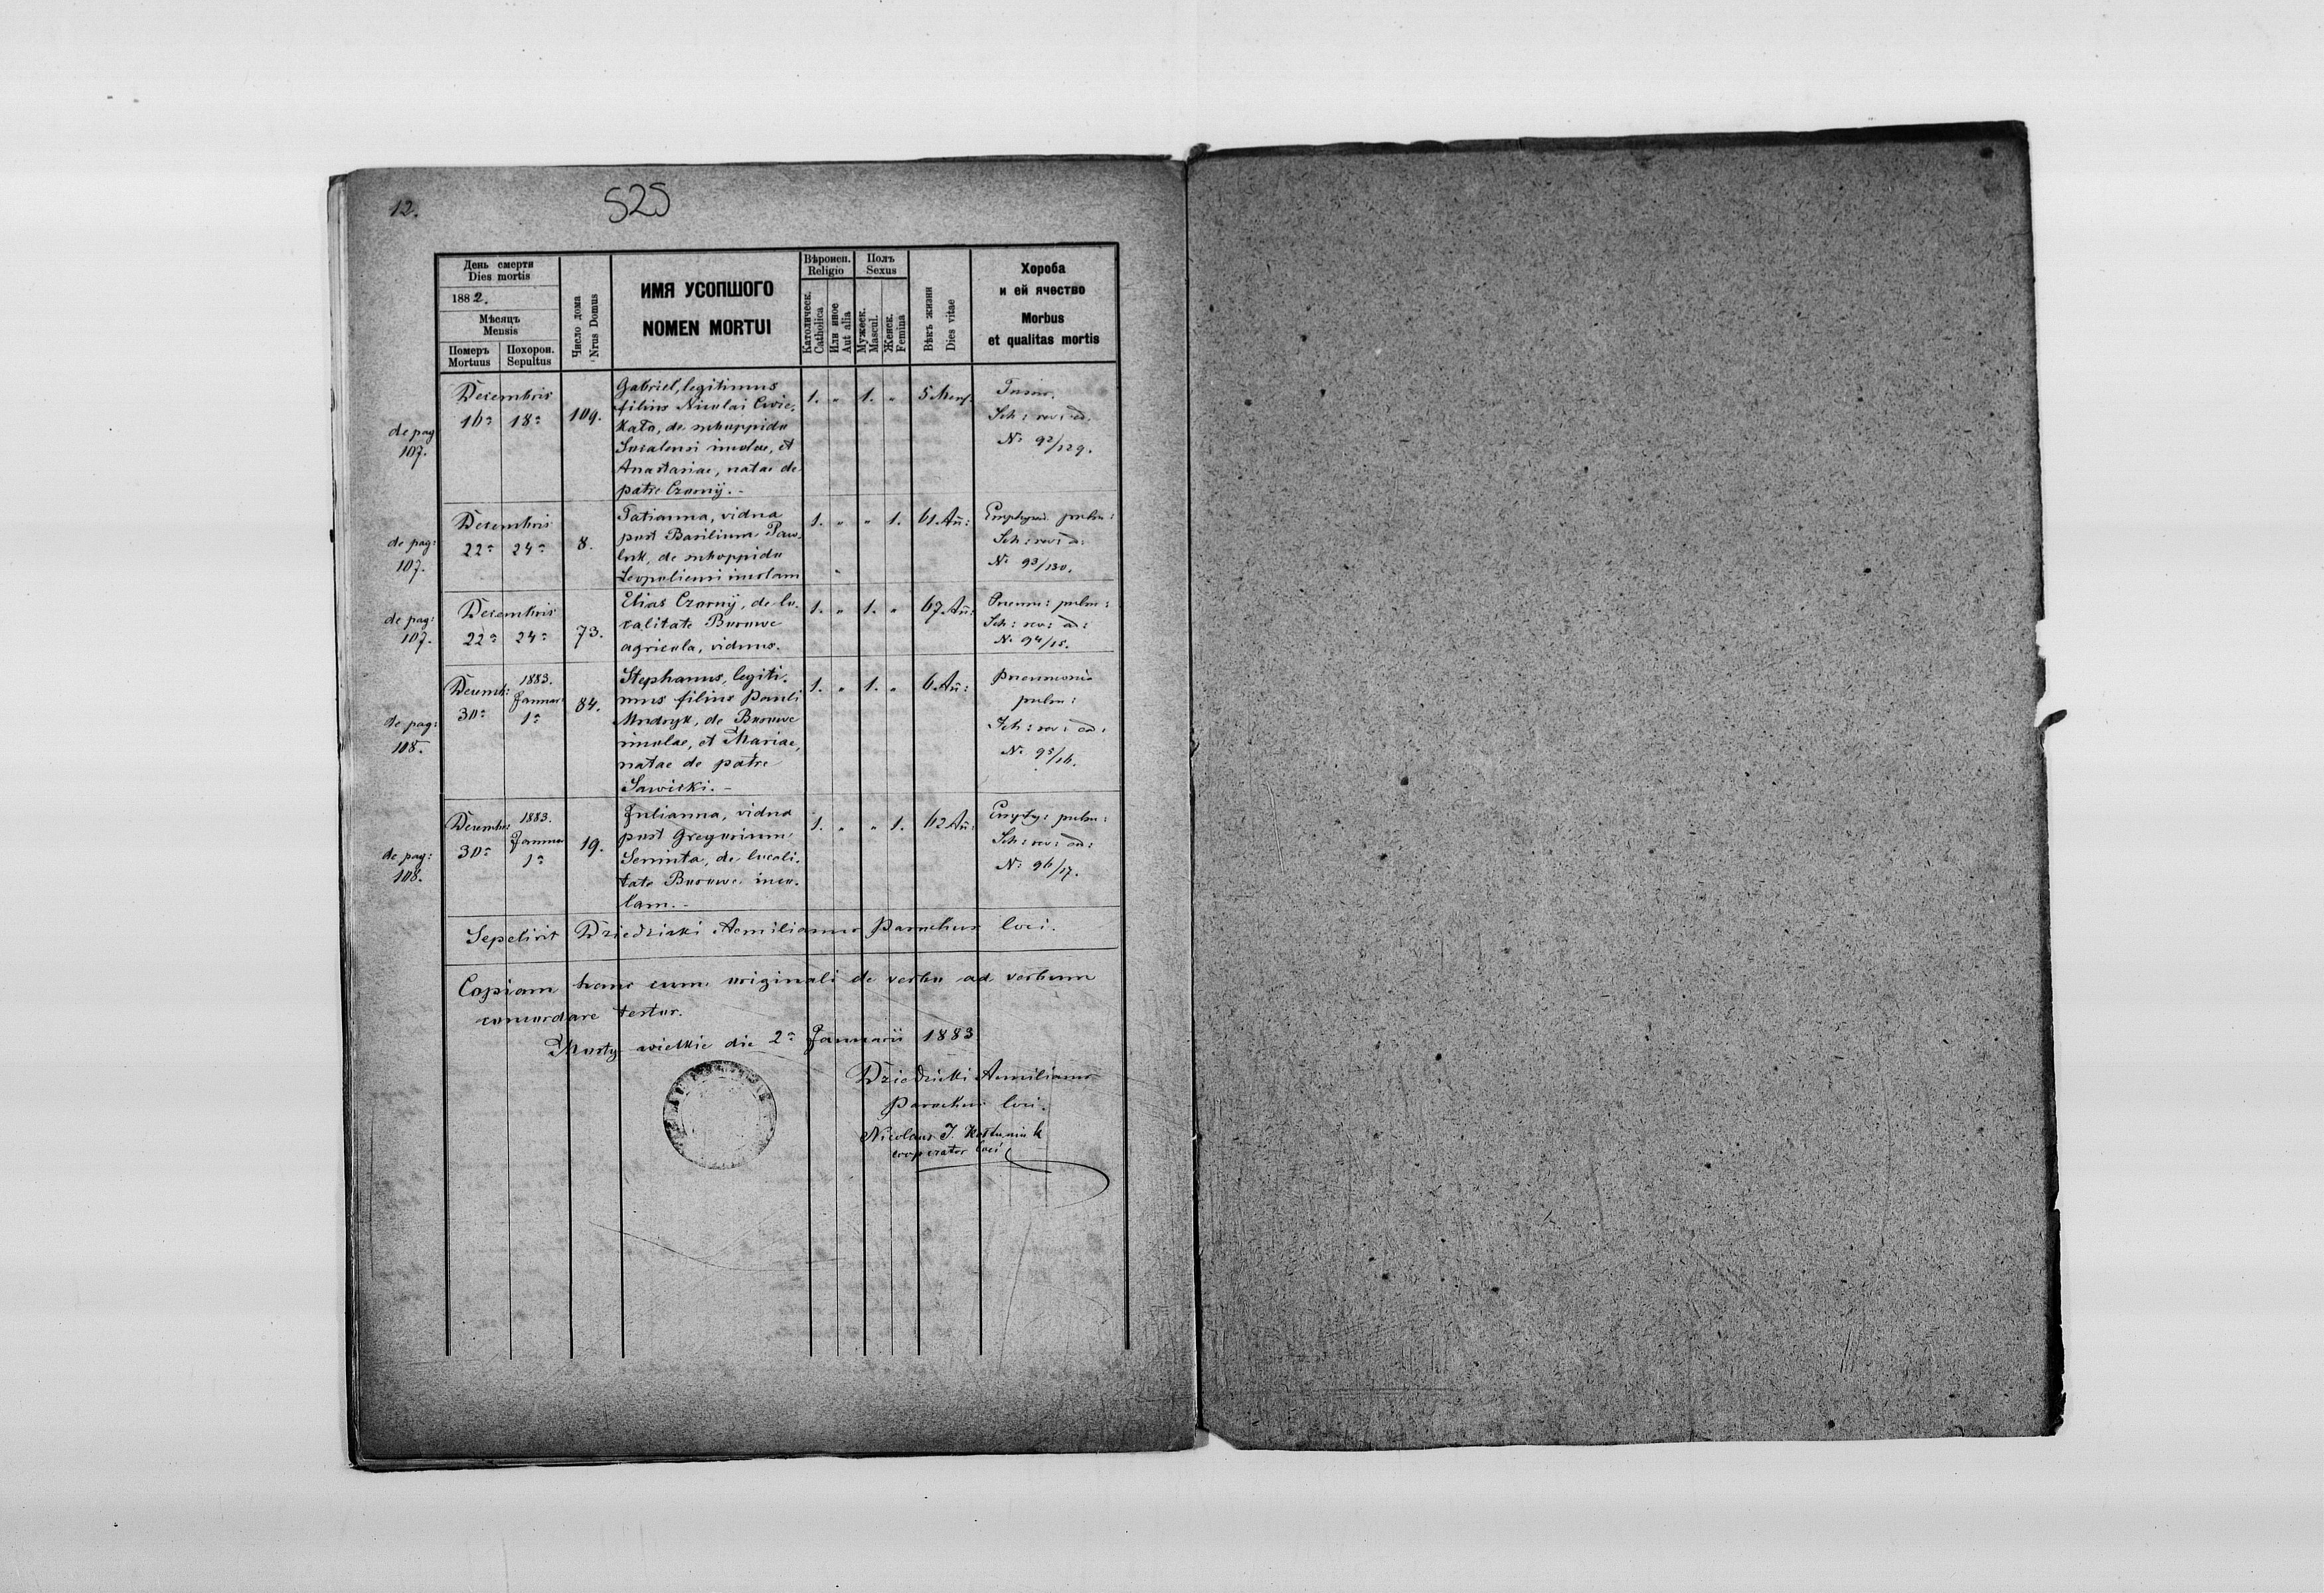 12.
525
День смерти
Dies mortis
1882.
Мѣсяцъ
Mensis
Померъ
Mortuus
Похорон.
Sepultus
Число дома
Nrus Domus
ИМЯ УСОПШОГО
NOMEN MORTUI
Вѣроисп.
Religio
Католическ.
Catholica
Или иное
Aut alia
Полъ
Sexus
Мужеск.
Mascul.
Женск.
Femina
Вѣкъ жизни
Dies vitae
Хороба
и ей ячество
Morbus
et qualitas mortis
de pag
107.
Decembris
16a 18a
109.
Gabriel, legitimus
filius Nicolai Cwie-
kała, de suboppido
Socalensi incolae, et
Anastasiae, natae de
patre Czornÿ.-
1. " 1. "
5 Mens.
Sch: rev: ad:
No 92/129.
de pag:
107.
Decembris
22a 24a
8.
Tatianna, vidua
post Basilium Paw-
luk, de suboppido
Leopoliensi incolam
1. " " 1.
61. An̄:
pulm:
Sch: rev: a:
No 93/130.
de pag:
107.
Decembris
22a 24a
73.
Elias Czornÿ, de lo-
calitate Borowe
agricola, viduus.
1. " 1. "
67. An̄:
Pneum: pulm:
Sch: rev: ad:
No 94/15.
de pag:
108.
Decemb:
30a
1883.
Januar:
1a
84.
Stephanus, legiti-
mus filius Pauli
Mudryk, de Borowe
incolae, et Mariae,
natae de patre
Sawicki.-
1. " 1. "
6. An̄:
Pneumonia
pulm:
Sch: rev: ad:
No 95/16.
de pag:
108.
Decembr:
30a
1883.
Januar
1a
19.
Julianna, vidua
post Gregorium
de locali-
tate Borowe inco-
lam.-
1. " " 1.
62 An̄:
pulm:
Sch: rev: ad:
No 96/17.
Sepelivit Dziedzicki Aemilianus Parochus loci.
Copiam hanc cum originali de verbo ad verbum
concordare testor.
Mosty wielkie die 2a Januarii 1883
Dziedzicki Aemilianus
Parochus loci.
Nicolaus J.
cooperator loci